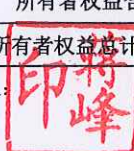 所有者权益合
所有者权益总计
蒋峰
印